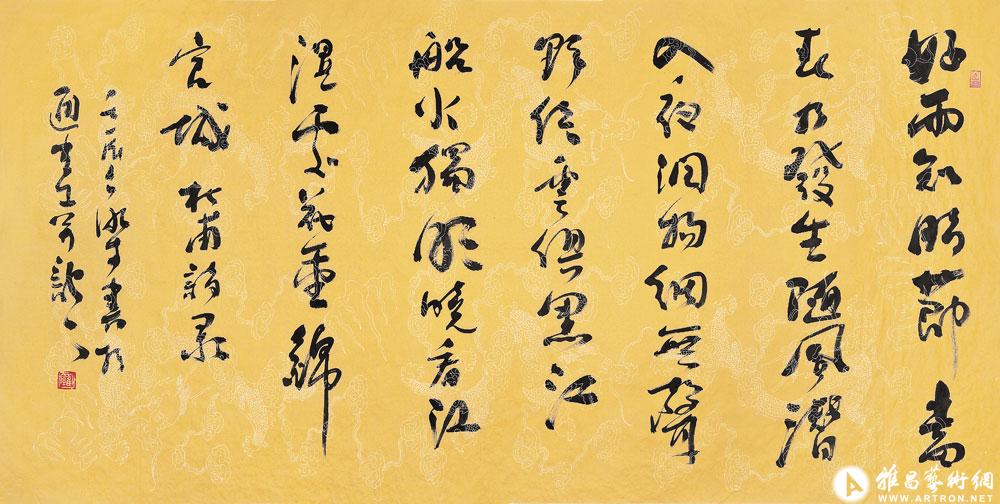 好雨知時節當
春乃發生隨風潛
入夜潤物細無聲
野徑雲俱黑江
船火獨明曉看紅
濕處花重錦
官城 杜甫詩
壬辰 書於
雅昌藝術網
WWW.ARTRON.NET